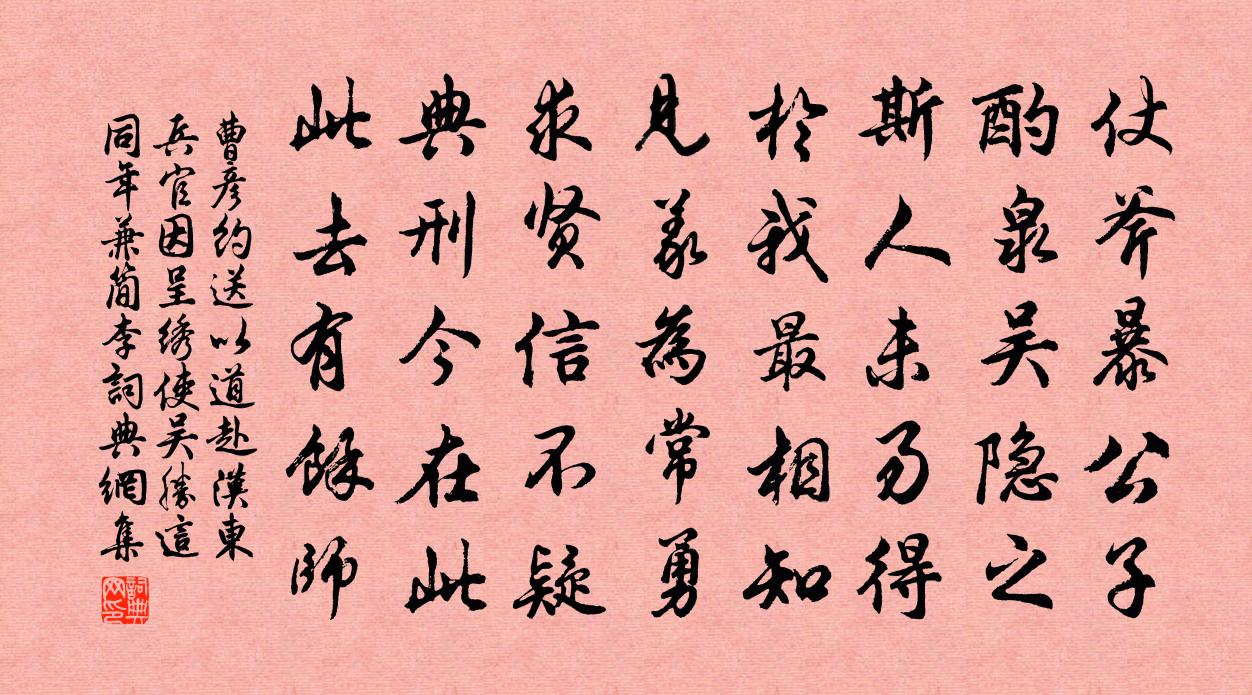 仗斧暴公子
酌泉吴隐之
斯人未易得
於我最相知
見義為常勇
求贤信不疑
典刑今在此
此去有餘師
曹彦约送以道赴漢東
兵官因呈绣使吴勝這
同年兼简李詞典網集
詞典网印